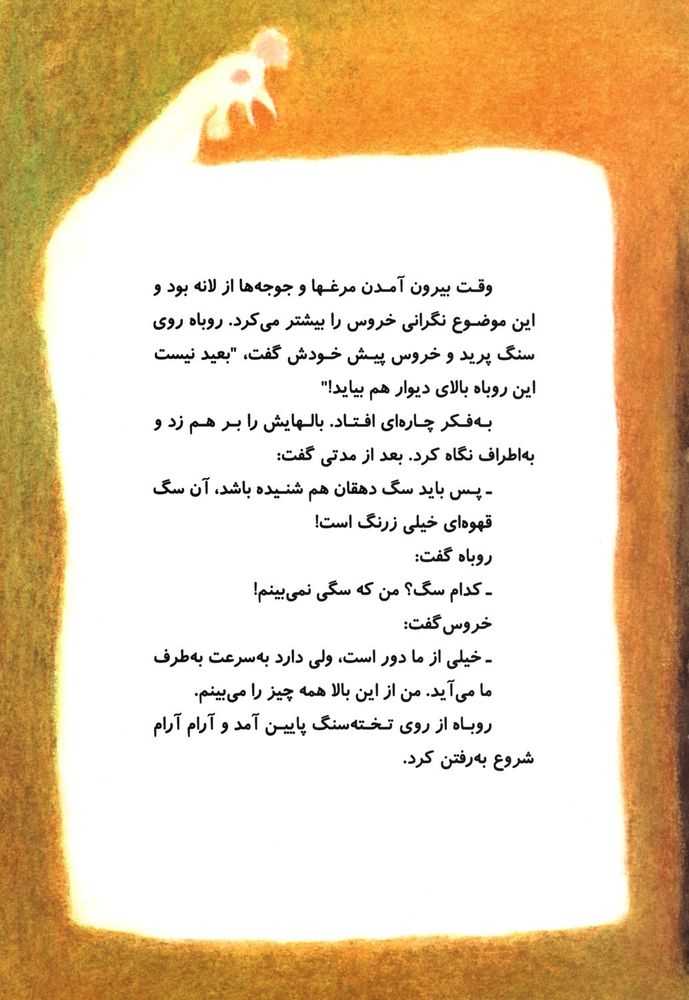 وقت بیرون آمدن مرغها و جوجه‌ها از لانه بود و
این موضوع نگرانی خروس را بیشتر می‌کرد. روباه روی
سنگ پرید و خروس پیش خودش گفت، "بعید نیست
این روباه بالای دیوار هم بیاید!"
به‌فکر چاره‌ای افتاد. بالهایش را بر هم زد و
به‌اطراف نگاه کرد. بعد از مدتی گفت:
ـ پس باید سگ دهقان هم شنیده باشد، آن سگ
قهوه‌ای خیلی زرنگ است!
روباه گفت:
ـ کدام سگ؟ من که سگی نمی‌بینم!
خروس گفت:
ـ خیلی از ما دور است، ولی دارد به‌سرعت به‌طرف
ما می‌آید. من از این بالا همه چیز را می‌بینم.
روباه از روی تخته‌سنگ پایین آمد و آرام آرام
شروع به‌رفتن کرد.